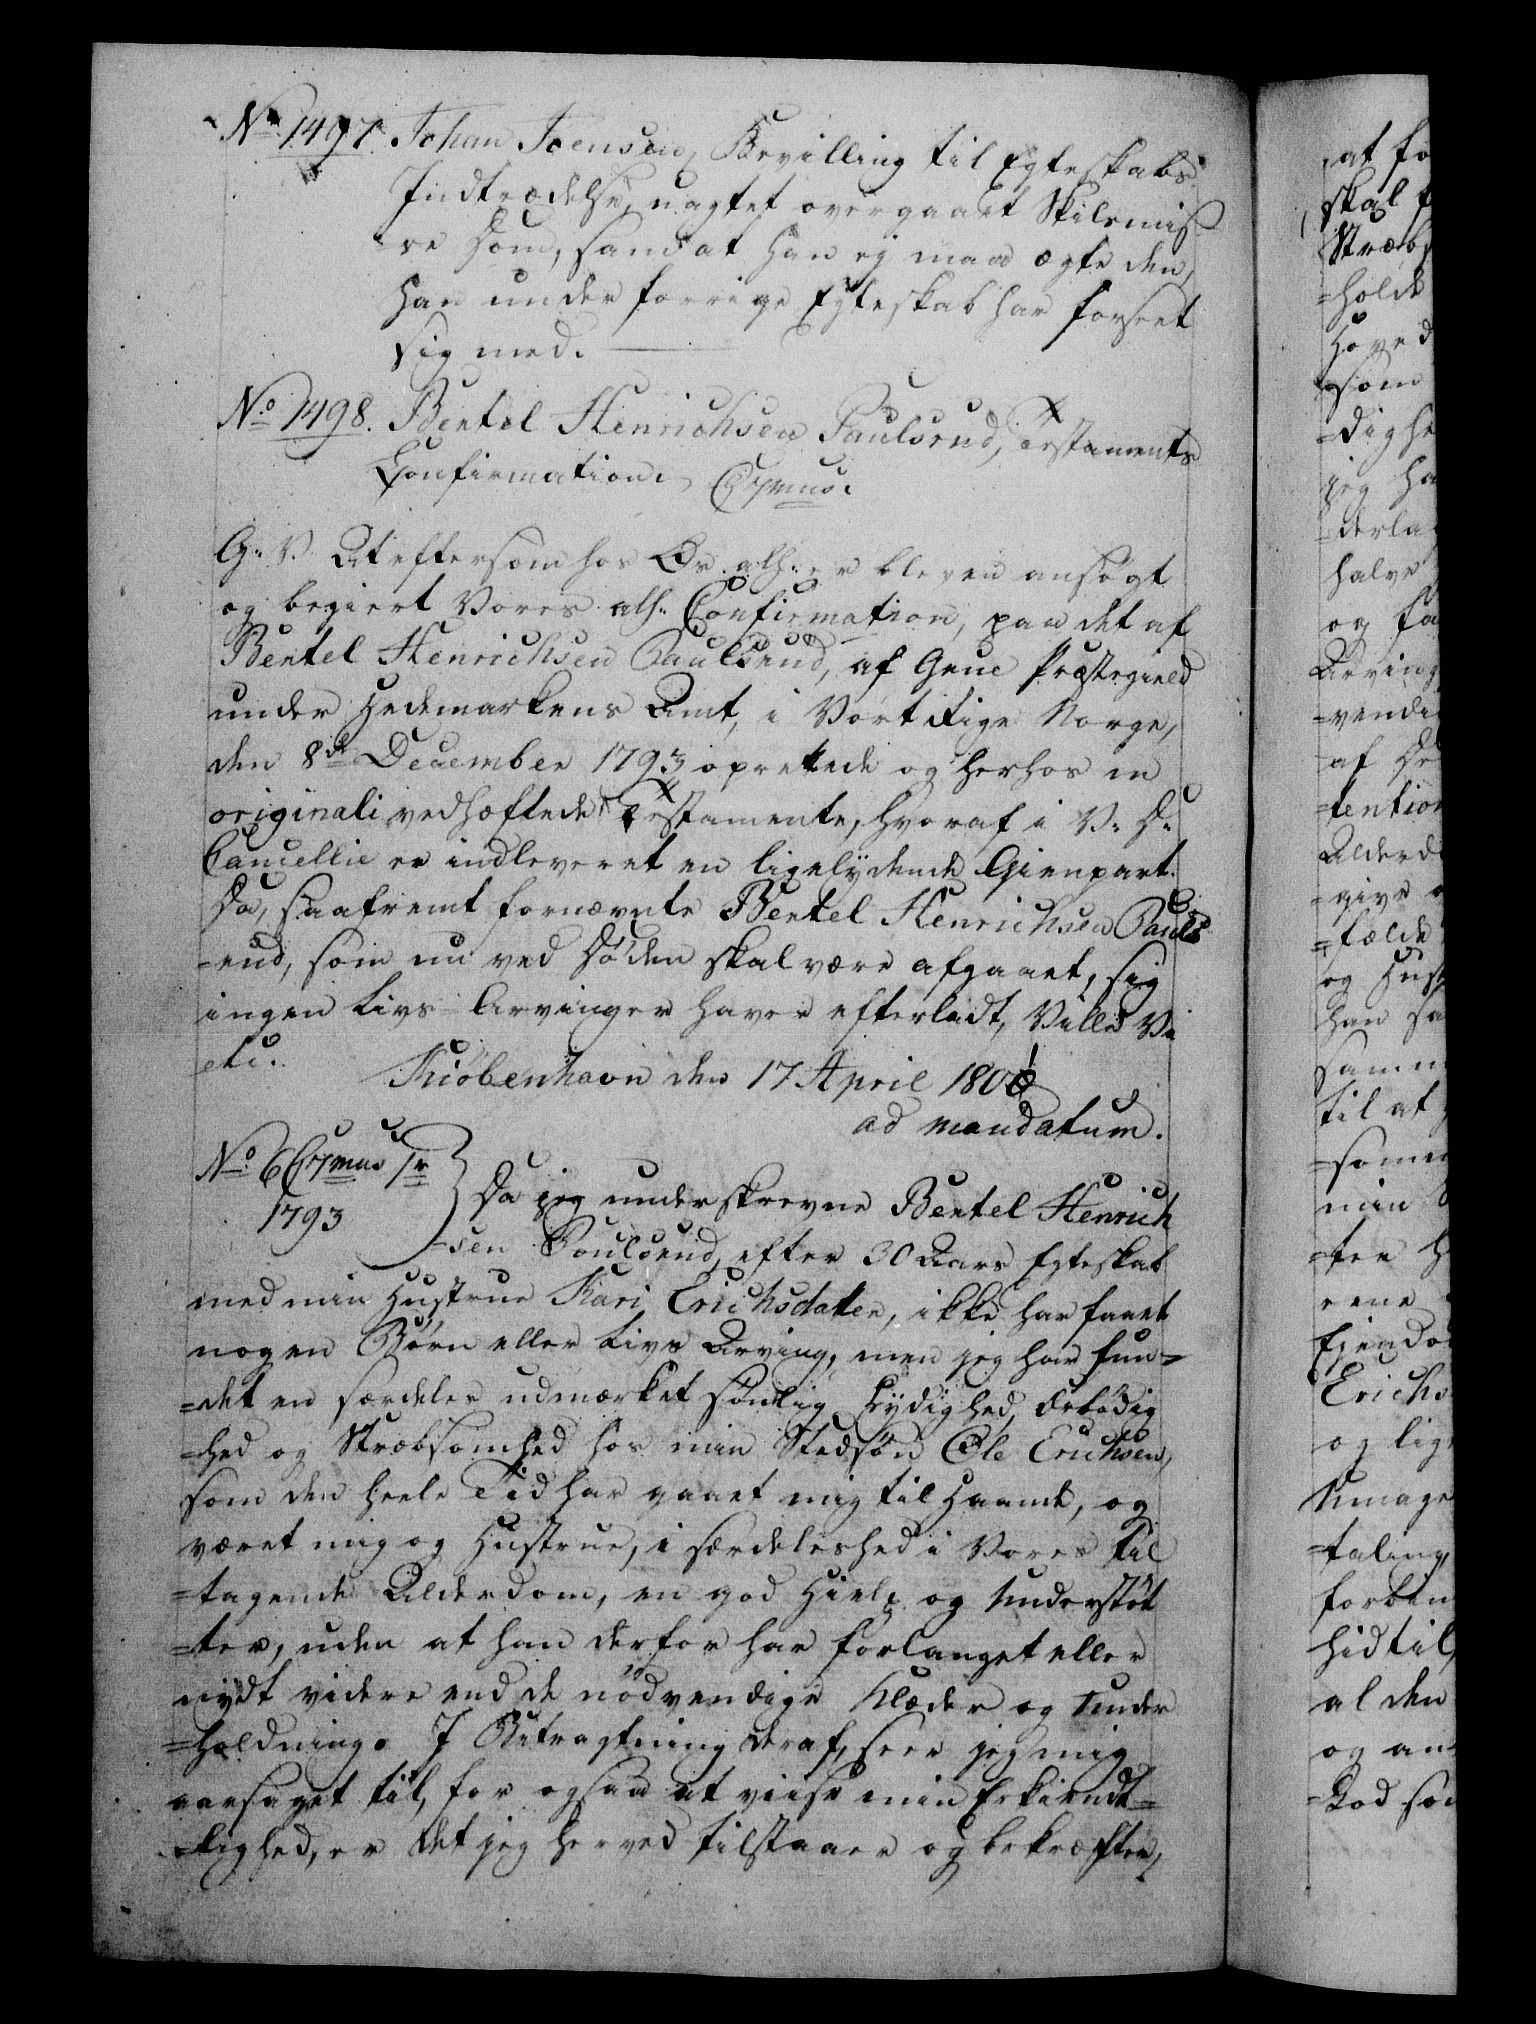 No 1497. Johan Joensen, Bevilling til Egteskabs
Indtrædelse, uagtet overgaaet Skilsmis
se Dom, samt at han ej maa ægte den,
han under forrige Egteskab har forseet
sig med.
No 1498. Bentel Henrichsen Paulsrud, Testaments
Confirmation.
G. V. At eftersom hos Os alh: er bleven ansøgt
og begiert Vores alh: Confirmation, paa det af
Bentel Henrichsen Paulsrud, af Grue Præstegield
under Hedemarkens Amt, i Vort Rige Norge,
den 8de December 1793 oprettede og herhos in
originali vedhæftede Testamente, hvoraf i V: D:
Cancellie er indleveret en ligelydende Gienpart.
Da, saafremt fornævnte Bentel Henrichsen Pauls
=rud, som nu ved Døden skal være afgaaet, sig
ingen Livs Arvinger haver efterladt, Ville Vi
etc.
Kiøbenhavn den 17 April 1801
ad mandatum.
No 6 1r
1793
Da jeg underskrevne Bentel Henrich
=sen Poulsrud, efter 30 Aars Egteskab
med min Hustrue Kari Erichsdatter, ikke har faaet
nogen Børn eller Livs Arving, men jeg har fun=
=det en særdeles udmærket sønlig Lydighed, Ærbødig
=hed og Stræbsomhed hos min Stedsøn Ole Erichsen,
som den heele Tid har gaaet mig til Haande, og
været mig og Hustrue, i særdeleshed i Vores til
=tagende Alderdom, en god Hielp og Understøt
=ter, uden at han derfor har forlanget eller
nydt videre end de nødvendige Klæder og Under
=holdning. I Betragtning deraf, seer jeg mig
aarsaget til, for ogsaa at viise min Erkiendt=
=lighed, er det jeg herved tilstaaer og bekræfter,
at fo
skal
Stræbs
=holde
Hoved
som
=dighe
jeg ha
=derla
halve
og fa
Arving
=vendi
af De
=tention
Alderd
=give
=fælde
og Hust
han sa
samm
til at
=somm
min
=ter H
rene
Eiendo
Erichs
og lig
Umage
=taling,
forbin
hidtil,
al den
og an
God som